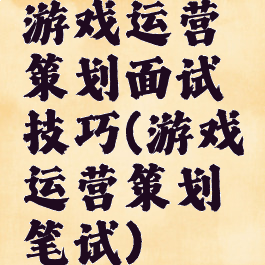 游戏运营
策划面试
技巧(游戏
运营策划
笔试)